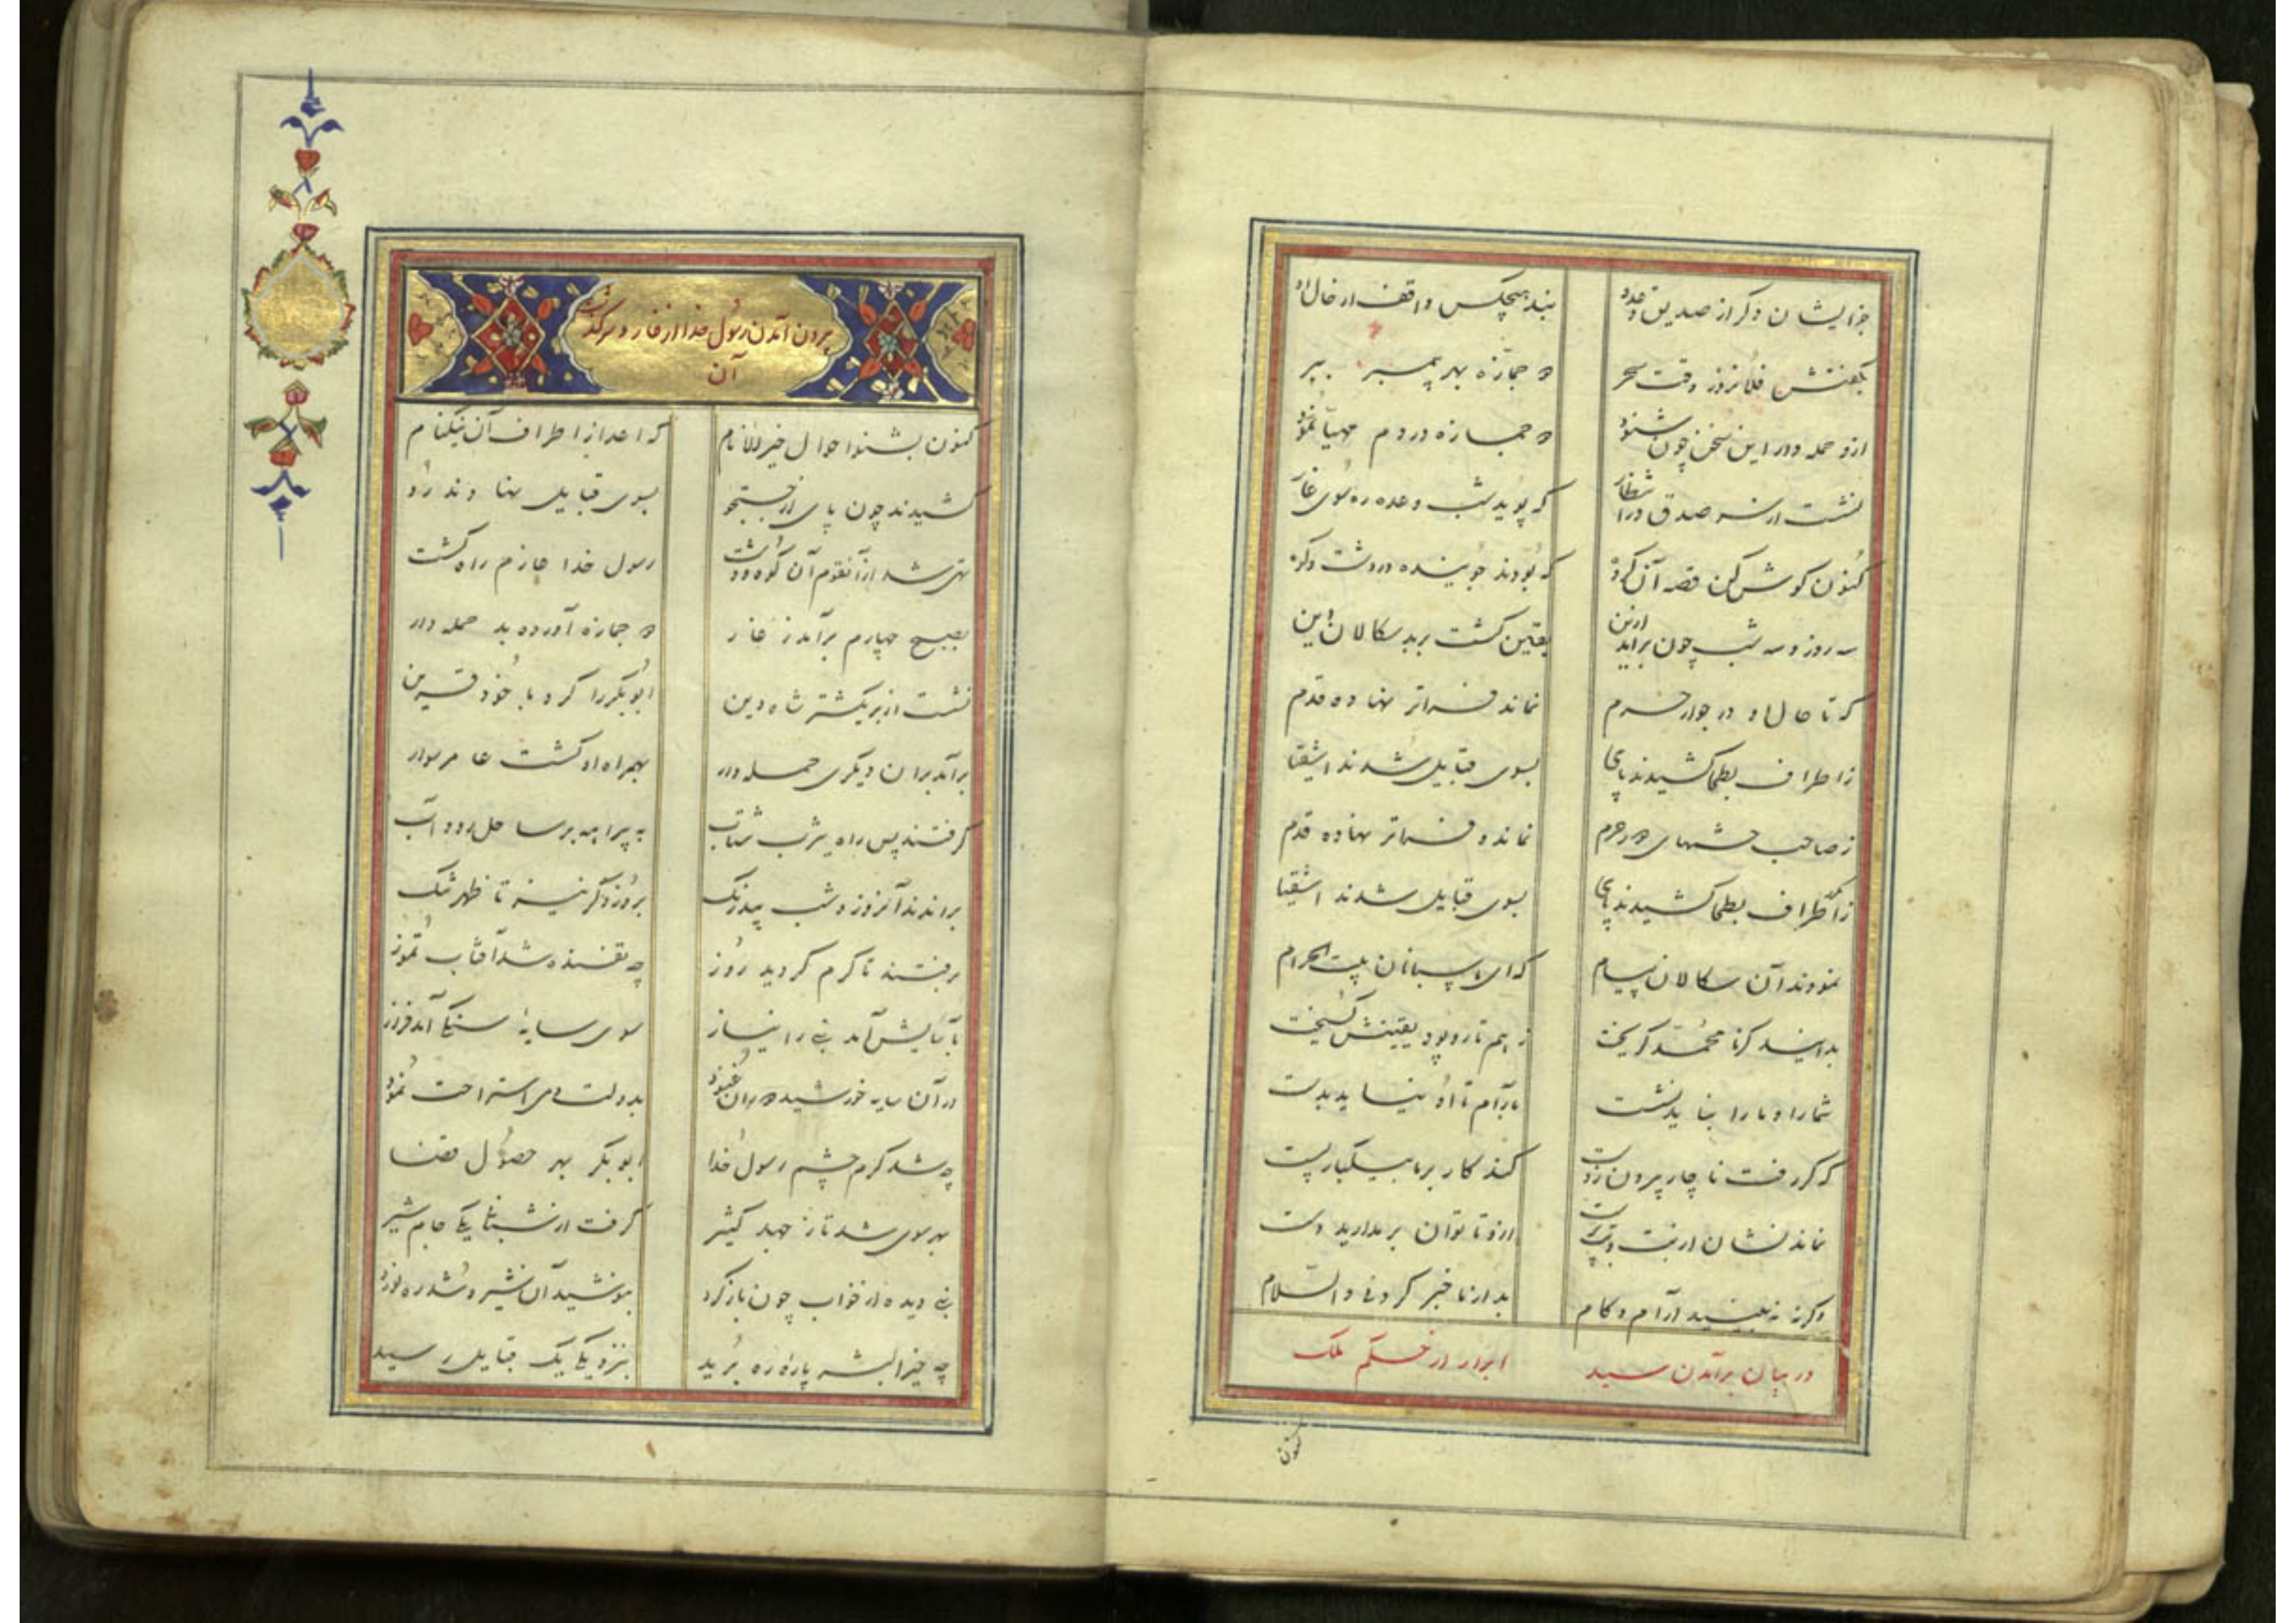 جز ایشان دگر از صدیق و عدو نبد هیچکس واقف از حال او
بگفتش فلانروز وقت سحر دو جمازه بهر پیمبر ببر
ازو حمله دار این سخن چون شنود دو جمازه در دم مهیا نمود
نشست از سر صدق در انتظار که پوید شب وعده ره سوی غار
کنون گوش کن قصه آن گروه که بودند جوینده در دشت و کوه
سه روز و سه شب چون برآید ازین یقین گشت بر بد سکالان دین
که تا حال او در جوار حرم نماند فراتر نهاده قدم
ز اطراف بطحا کشیدند پای بسوی قبایل شدند اشقیا
ز صاحب حشمهای در حرم نماند و فراتر نهاده قدم
ز اطراف بطحا کشیدند پای بسوی قبایل شدند اشقیا
نمودند آن سکالان پیام که ای پاسبانان بیت الحرام
بدانید کز ما محمد گریخت ز هم تار و پود یقینش گسیخت
شما را و ما را نباید نشست بآرام تا او نیاید بدست
که گر رفت ناچار بیرون ز دست کند کار بر ما بیکبار پست
نماند نشان از بت و بت پرست ازو تا توان بر مدارید دست
وگرنه نبینید آرام و کام بد از ما خبر کردن والسلام
در بیان برآمدن سید ابرار از حکم ملک
کنون
بیرون آمدن رسول خدا از غار و سرگذشت
آن
کنون بشنو احوال خیر الانام که اعدا ز اطراف آن نیکنام
کشیدند چون پای از جستجو بسوی قبایل نهادند رو
تهی شد از آنقوم آن کوه و دشت رسول خدا عازم راه گشت
بصبح چهارم برآمد ز غار دو جمازه آورده بد حمله دار
نشست از بر یکشتر شاه دین ابوبکر را کرد با خود قرین
برآمد بران دیگری حمله دار بهمراه او گشت عامر سوار
گرفتند پس راه یثرب شتاب به پیراهه بر ساحل رود آب
براندند آنروز و شب بیدرنگ بروز دگر نیز تا ظهر تنگ
برفتند تا گرم گردید روز چه تفسنده شد آفتاب تموز
بآسایش آمد نبی را نیاز سوی سایه سنگی آمد فراز
در آن سایه خورشید دوران غنود بدولت دمی استراحت نمود
چه شد گرم چشم رسول خدا ابوبکر بهر حصول غذا
بهر سوی شد تا ز جهد کثیر گرفت از شبانی یکی جام شیر
نبی دیده از خواب چون باز کرد بنوشید آن شیر و شد ره نورد
چه خیر البشر پاره ره برید بنزدیکی یک قبایل رسید